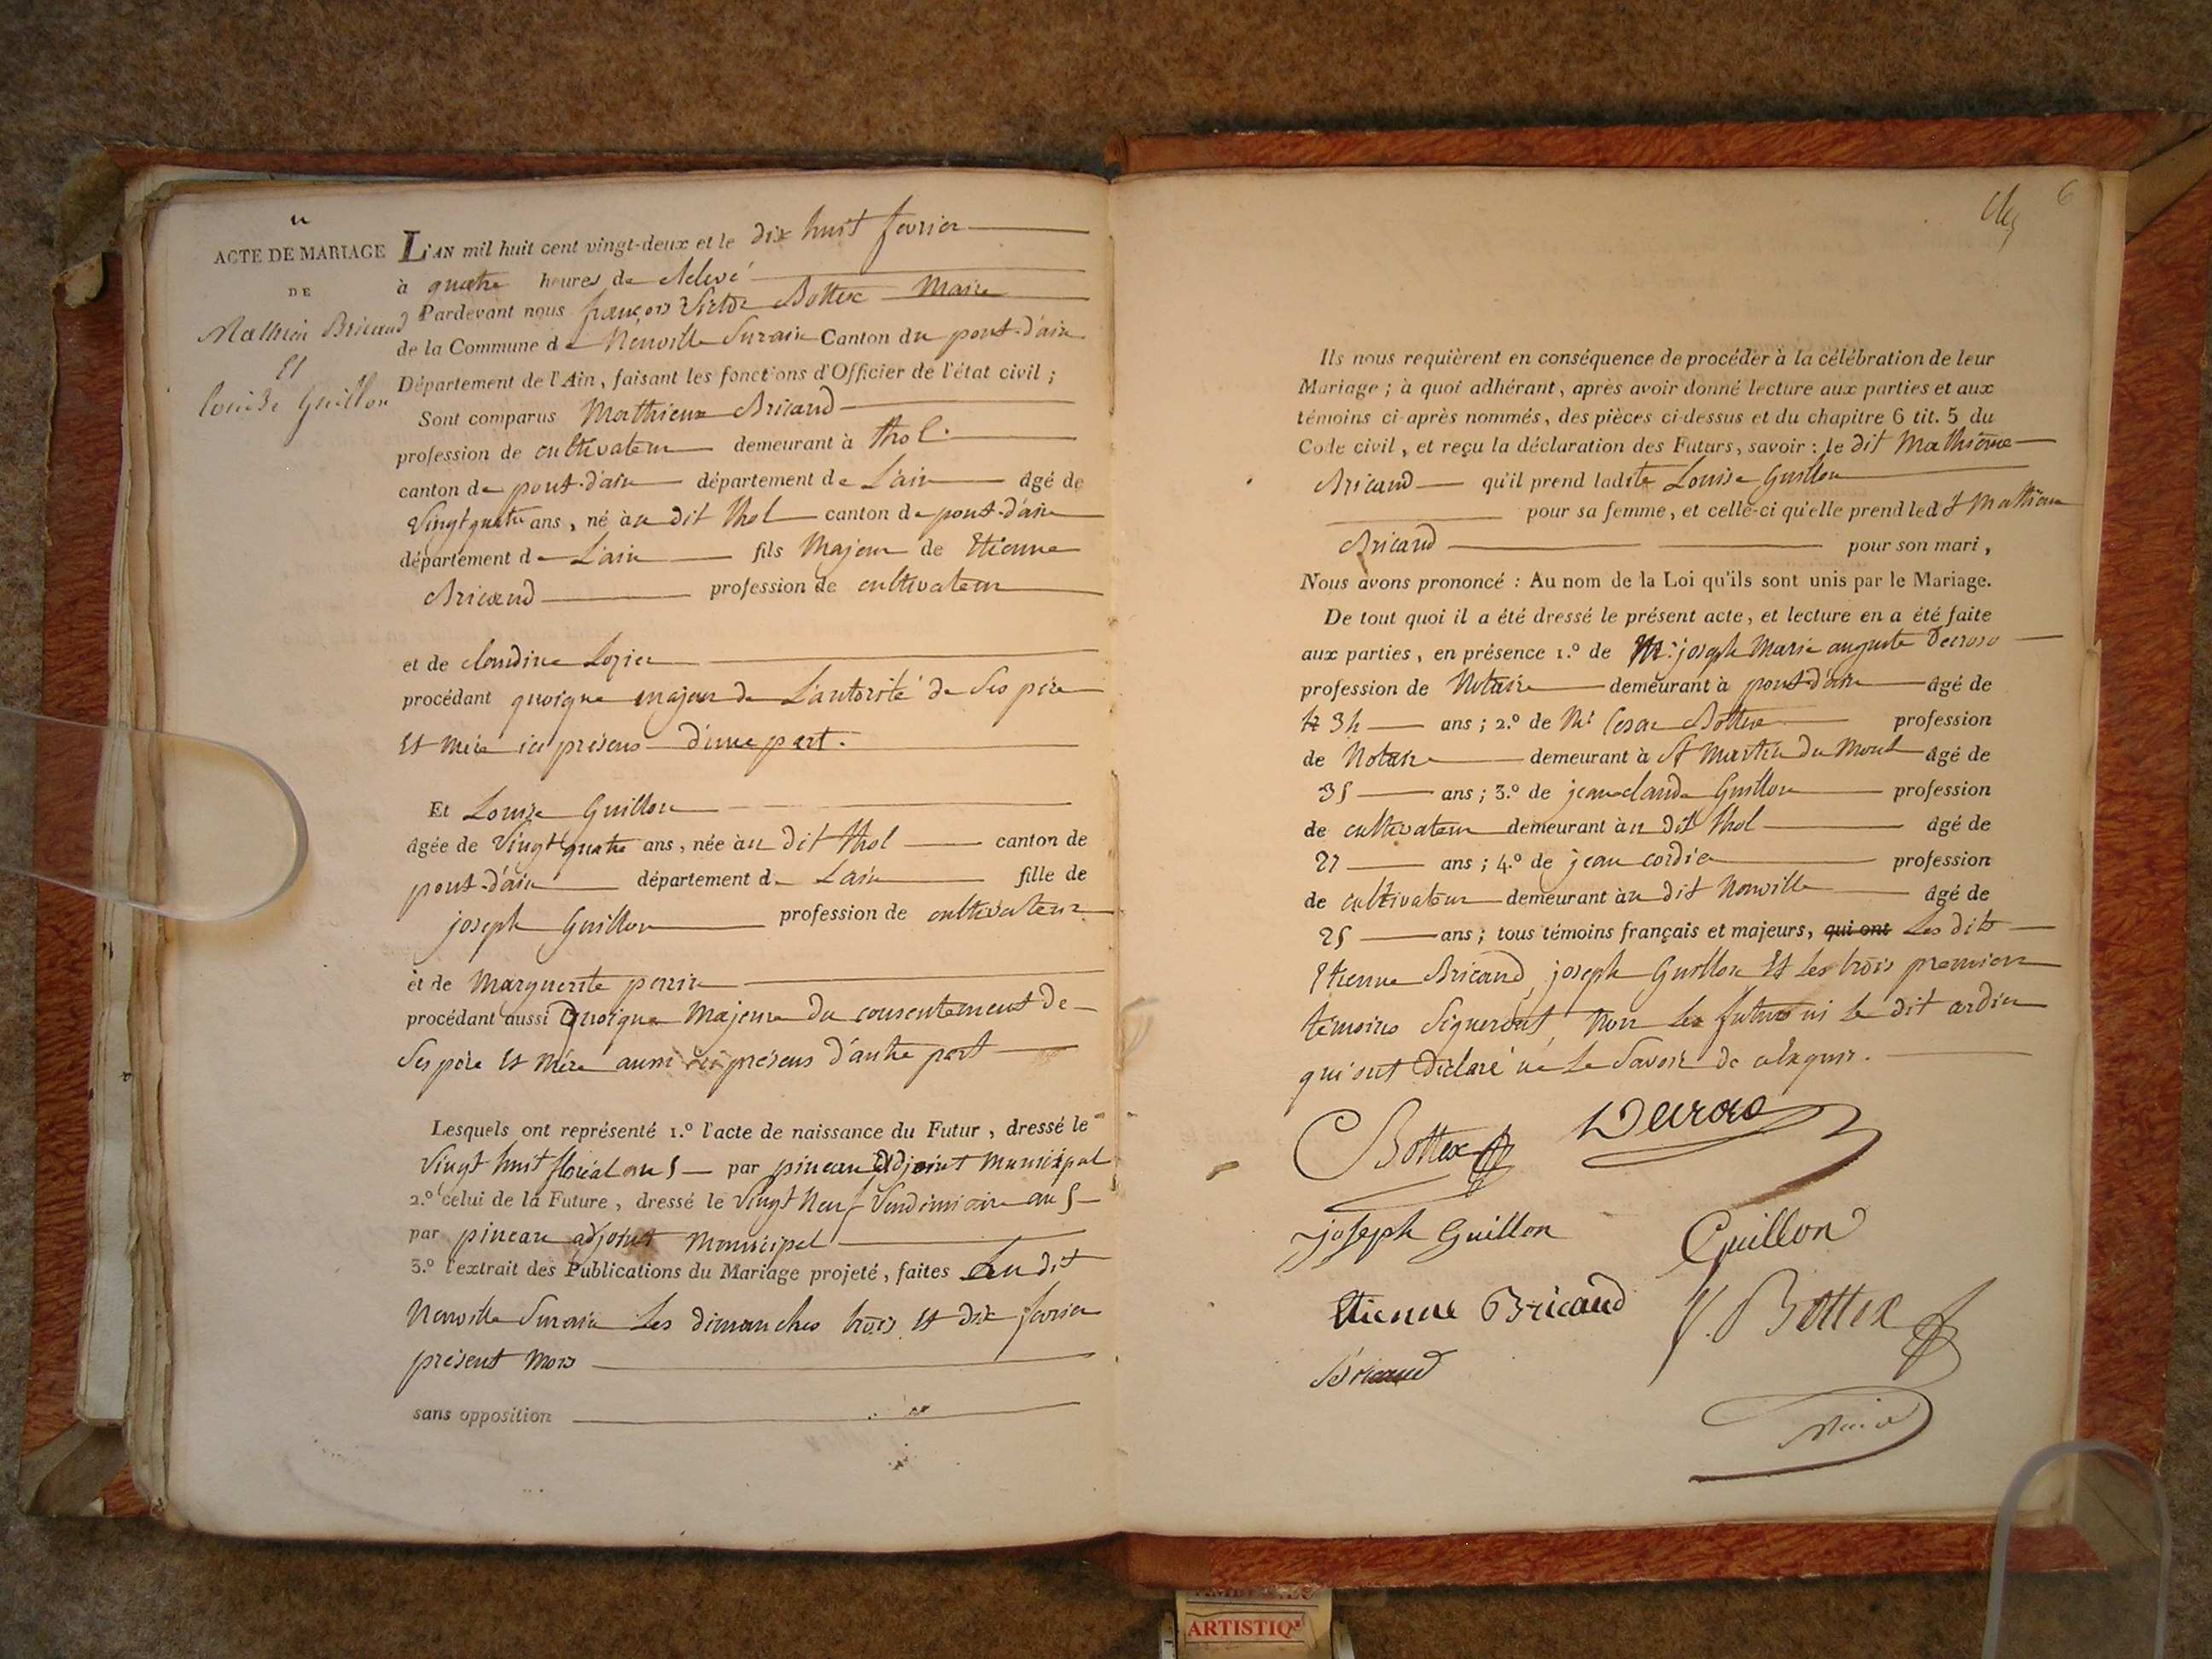 11
ACTE DE MARIAGE
DE
Mathieu Bricaud
Et
Louise Guillon
L'AN mil huit cent vingt-deux et le dix huit fevrier
à quatre heures de Relevé
Pardevant nous françois Victor Bottex Maire
de la Commune de Neuville Surain Canton du pont-d'ain
Département de l'Ain, faisant les fonctions d'Officier de l'état civil ;
Sont comparus Mathieu Bricaud
profession de cultivateur demeurant à thol
canton de pont-d'ain département de L'ain âgé de
Vingt quatre ans, né au dit thol canton de pont-d'ain
département de L'ain fils Majeur de Etienne
Bricaud profession de cultivateur
et de claudine Lozier
procédant quoique majeur de L'autorité de Ses père
Et mère ici présens d'une part.
Et Louise Guillon
âgée de Vingt quatre ans, née au dit thol canton de
pont-d'ain département de L'ain fille de
joseph Guillon profession de cultivateur
et de Marguerite perrin
procédant aussi quoique Majeure du consentement de
Ses père Et Mère aussi ici présens d'autre part
Lesquels ont représenté 1.º l'acte de naissance du Futur, dressé le
Vingt huit floréal an 5 par pineau adjoint Municipal
2.º celui de la Future, dressé le Vingt Neuf Vendémiaire an 5
par pineau adjoint Municipal
3.º l'extrait des Publications du Mariage projeté, faites au dit
Neuville Surain Les dimanches trois Et dix fevrier
présent mois
sans opposition
6
Ils nous requièrent en conséquence de procéder à la célébration de leur
Mariage ; à quoi adhérant, après avoir donné lecture aux parties et aux
témoins ci-après nommés, des pièces ci-dessus et du chapitre 6 tit. 5 du
Code civil, et reçu la déclaration des Futurs, savoir : le dit Mathieu
Bricaud qu'il prend ladite Louise Guillon
pour sa femme, et celle-ci qu'elle prend led t Mathieu
Bricaud pour son mari,
Nous avons prononcé : Au nom de la Loi qu'ils sont unis par le Mariage.
De tout quoi il a été dressé le présent acte, et lecture en a été faite
aux parties, en présence 1.º de Mr. joseph Marie auguste Decroso
profession de Notaire demeurant à pont-d'ain âgé de
34 ans ; 2.º de Mr Cesar Bottex profession
de Notaire demeurant à St Martin du Mont âgé de
35 ans ; 3.º de jean claude Guillon profession
de cultivateur demeurant au dit thol âgé de
27 ans ; 4.º de jean cordier profession
de cultivateur demeurant au dit Neuville âgé de
25 ans ; tous témoins français et majeurs, qui ont Les dits
Etienne Bricaud, joseph Guillon Et les trois premiers
témoins Signeront, Non les futurs ni le dit
qui ont déclaré ne Le Savoir de ce
C Bottex Decroso
joseph Guillon Guillon
Etienne Bricaud V. Bottex
Bricaud
Maire
ARTISTIQ